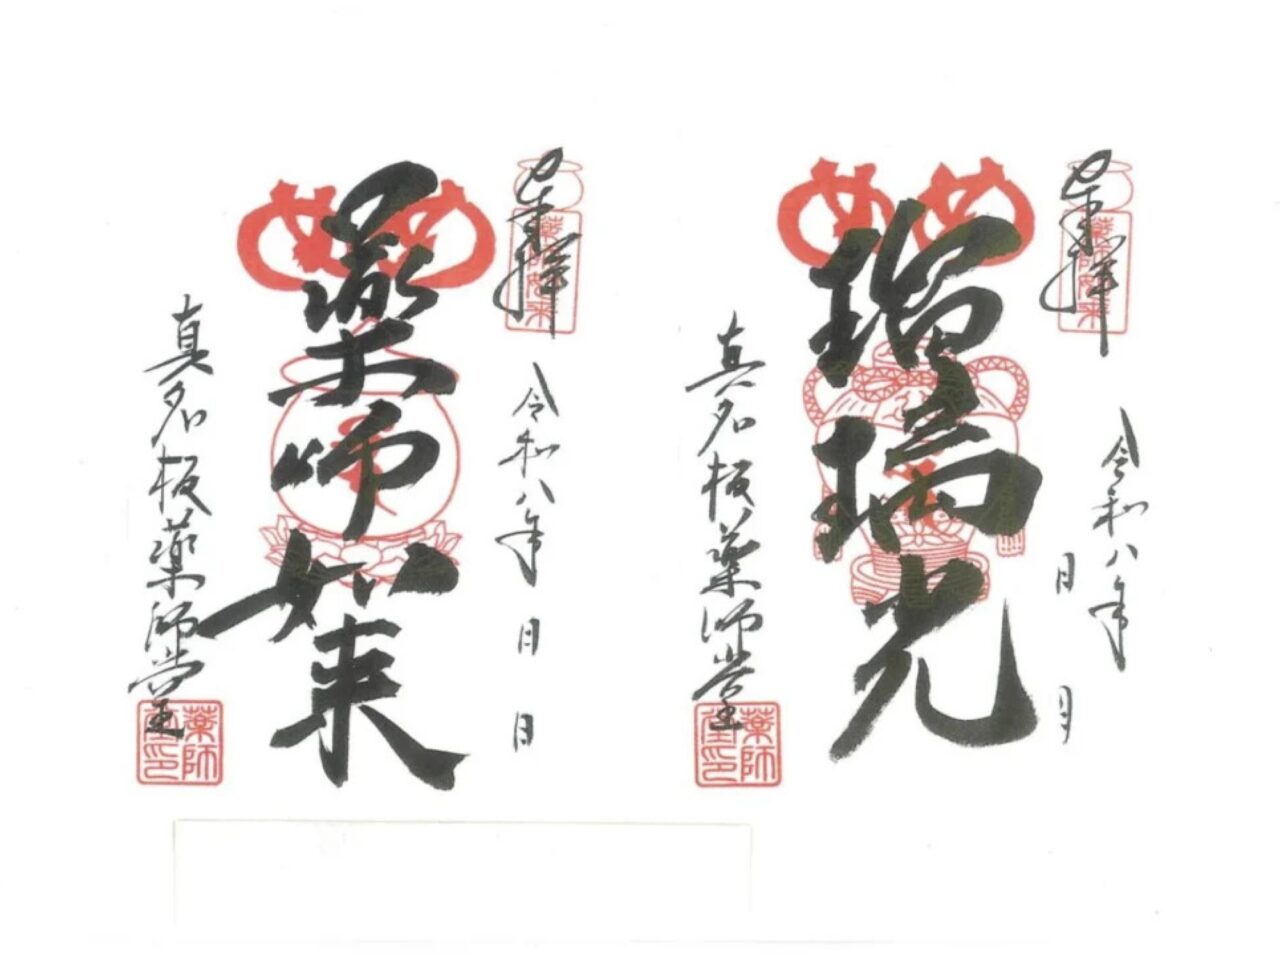 奉拝
薬師如来
令和八年
月　日
瑠璃光
め
真名板薬師堂
薬師堂印
奉拝
薬師如来
令和八年
月　日
薬師如来
め
真名板薬師堂
薬師堂印